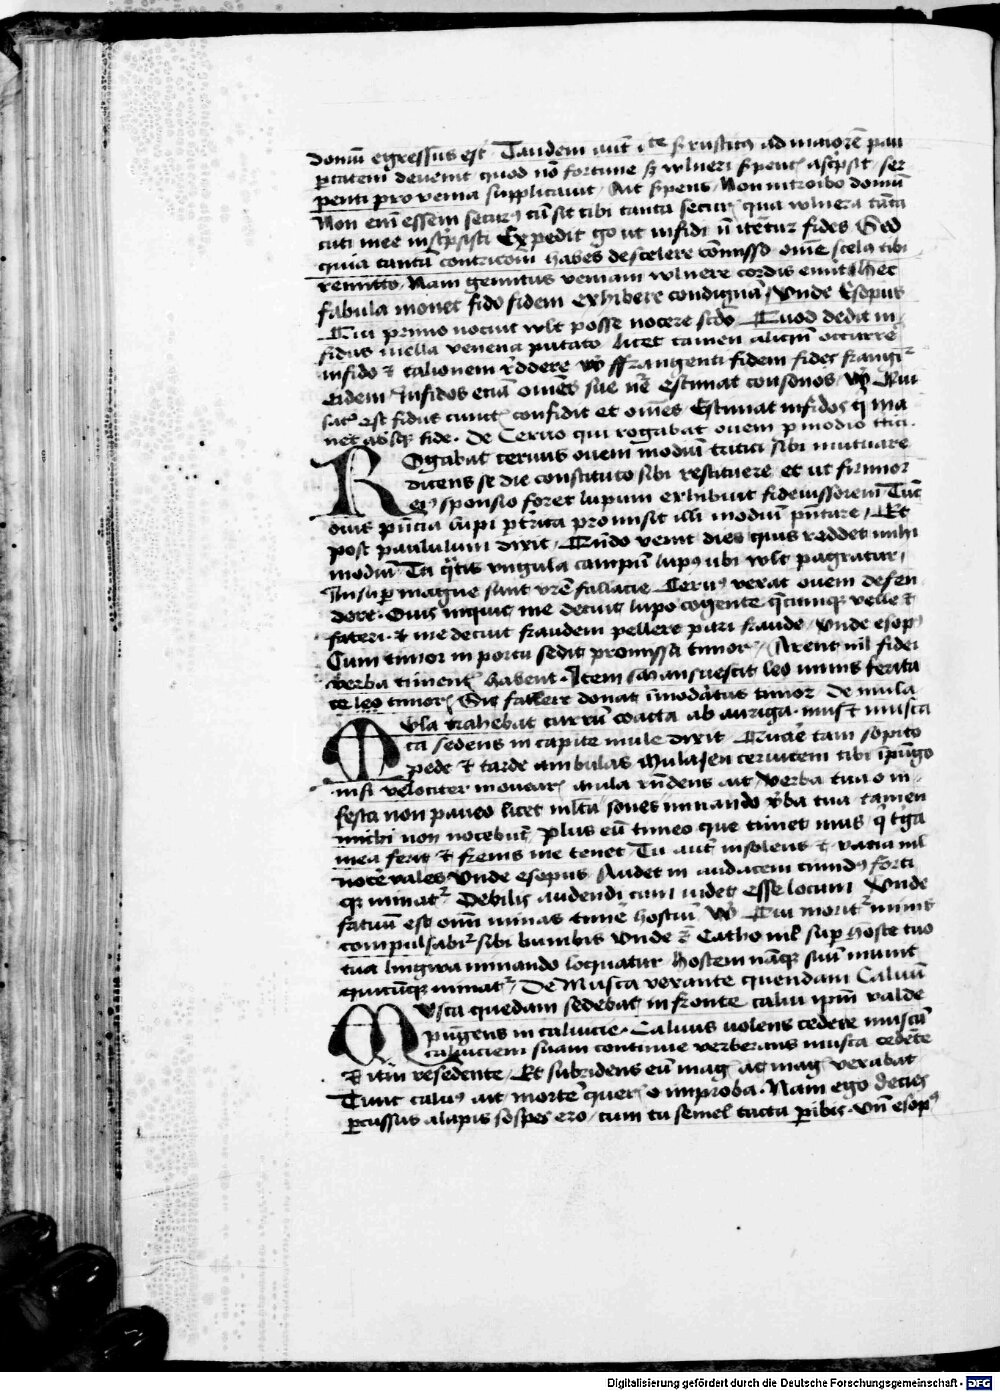 domum egressus est Tandem aut ite sr rusticus ad maiorē pau
ptatem devenit quod nō fortune sz vulneri serpentis ascripsit ser
penti pro venia supplicauit Ait serpens Non introibo domū
Non enī essem securus cū sit tibi tanta securis qua vulnera tāta
cuti mee inscripsisti Expedit go ut infidi nō iterētur fides Sed
quia tantā contricōm habes de scelere cōmisso omē scelus tibi
remitto Nam gemitus veniam vulnere cordis emit Hec
fabula monet fido fidem exhibere condignā Unde Esopus
Qui primo nocuit vult posse nocere scdo Quod dedit in
fidus mella venena putato licet tamen alicui occurre
infido et talionem reddere vn ffrangenti fidem fides frangitur
eidem Infidos etiā omēs sue estimat consonos
est fidus cunctis confidit et omēs Estimat infidos q ma
net absq fide De Ceruo qui rogabat ouem p modio ttici
Rogabat ceruus ouem modiū tritici sibi mutuare
dicens se die constituto sibi restituere et ut firmior
eius sponsio foret lupum exhibuit fideiussorem Tūc
ouis pñcia lupi pterrita promisit illi modiū pñtare Et
post paululum dixit Quādo venit dies quis reddet mihi
modiū Tu ungula campū lupus ubi vult pagratur
Insuper magne sunt vrē fallacie Ceruus vexat ouem defen
dere Ouis inquit me decuit lupo cogente qcumq velle et
fateri et me decuit fraudem pellere pari fraude Unde esopus
Cum timor in portu sedit promissa timoris Arent nil fidei
verba timentis habent Item mansuescit leo minus ferita
te leo timoris Sic fallere donat īmodatus timor De mula
Mula trahebat currū coacta ab auriga mus et musca
ca sedens in capite mule dixit Quare tam sopito
pede et tarde ambulas Mula en ceruicem tibi īpūgo
nisi velociter mouearis mula rñdens ait verba tua o in
festa non paueo licet mlta sones minando vba tua tamen
michi non nocebūt Plus eū timeo que timet mus q tga
mea ferit et frenis me tenet Tu aut insolens et vana nil
nocē vales Unde esopus Audet in audacem timidus forti
q minatur Debilis audendi cum videt esse locum Unde
fatuū est omī minas timē hostiū vn Qui moritur minis
compulsabitur sibi bumbis Unde et Catho nil sup hoste tuo
tua lingwa minando loquatur Hostem nāq suū munit
quicūq minatur De Musca vexante quendam Caluū
Musca quedam sedebat in fronte calui ipm valde
pūgens in caluicie Caluus uolens cedere muscā
caluiciem suam continue verberans musca cedēte
et itm residente Et subridens eū magis ac magis vexabat
Tunc caluus ait mortē queris o improba Nam ego decies
pcussus alapis sospes ero cum tu semel tacta pibis Vn esopus
Digitalisierung gefördert durch die Deutsche Forschungsgemeinschaft - DFG